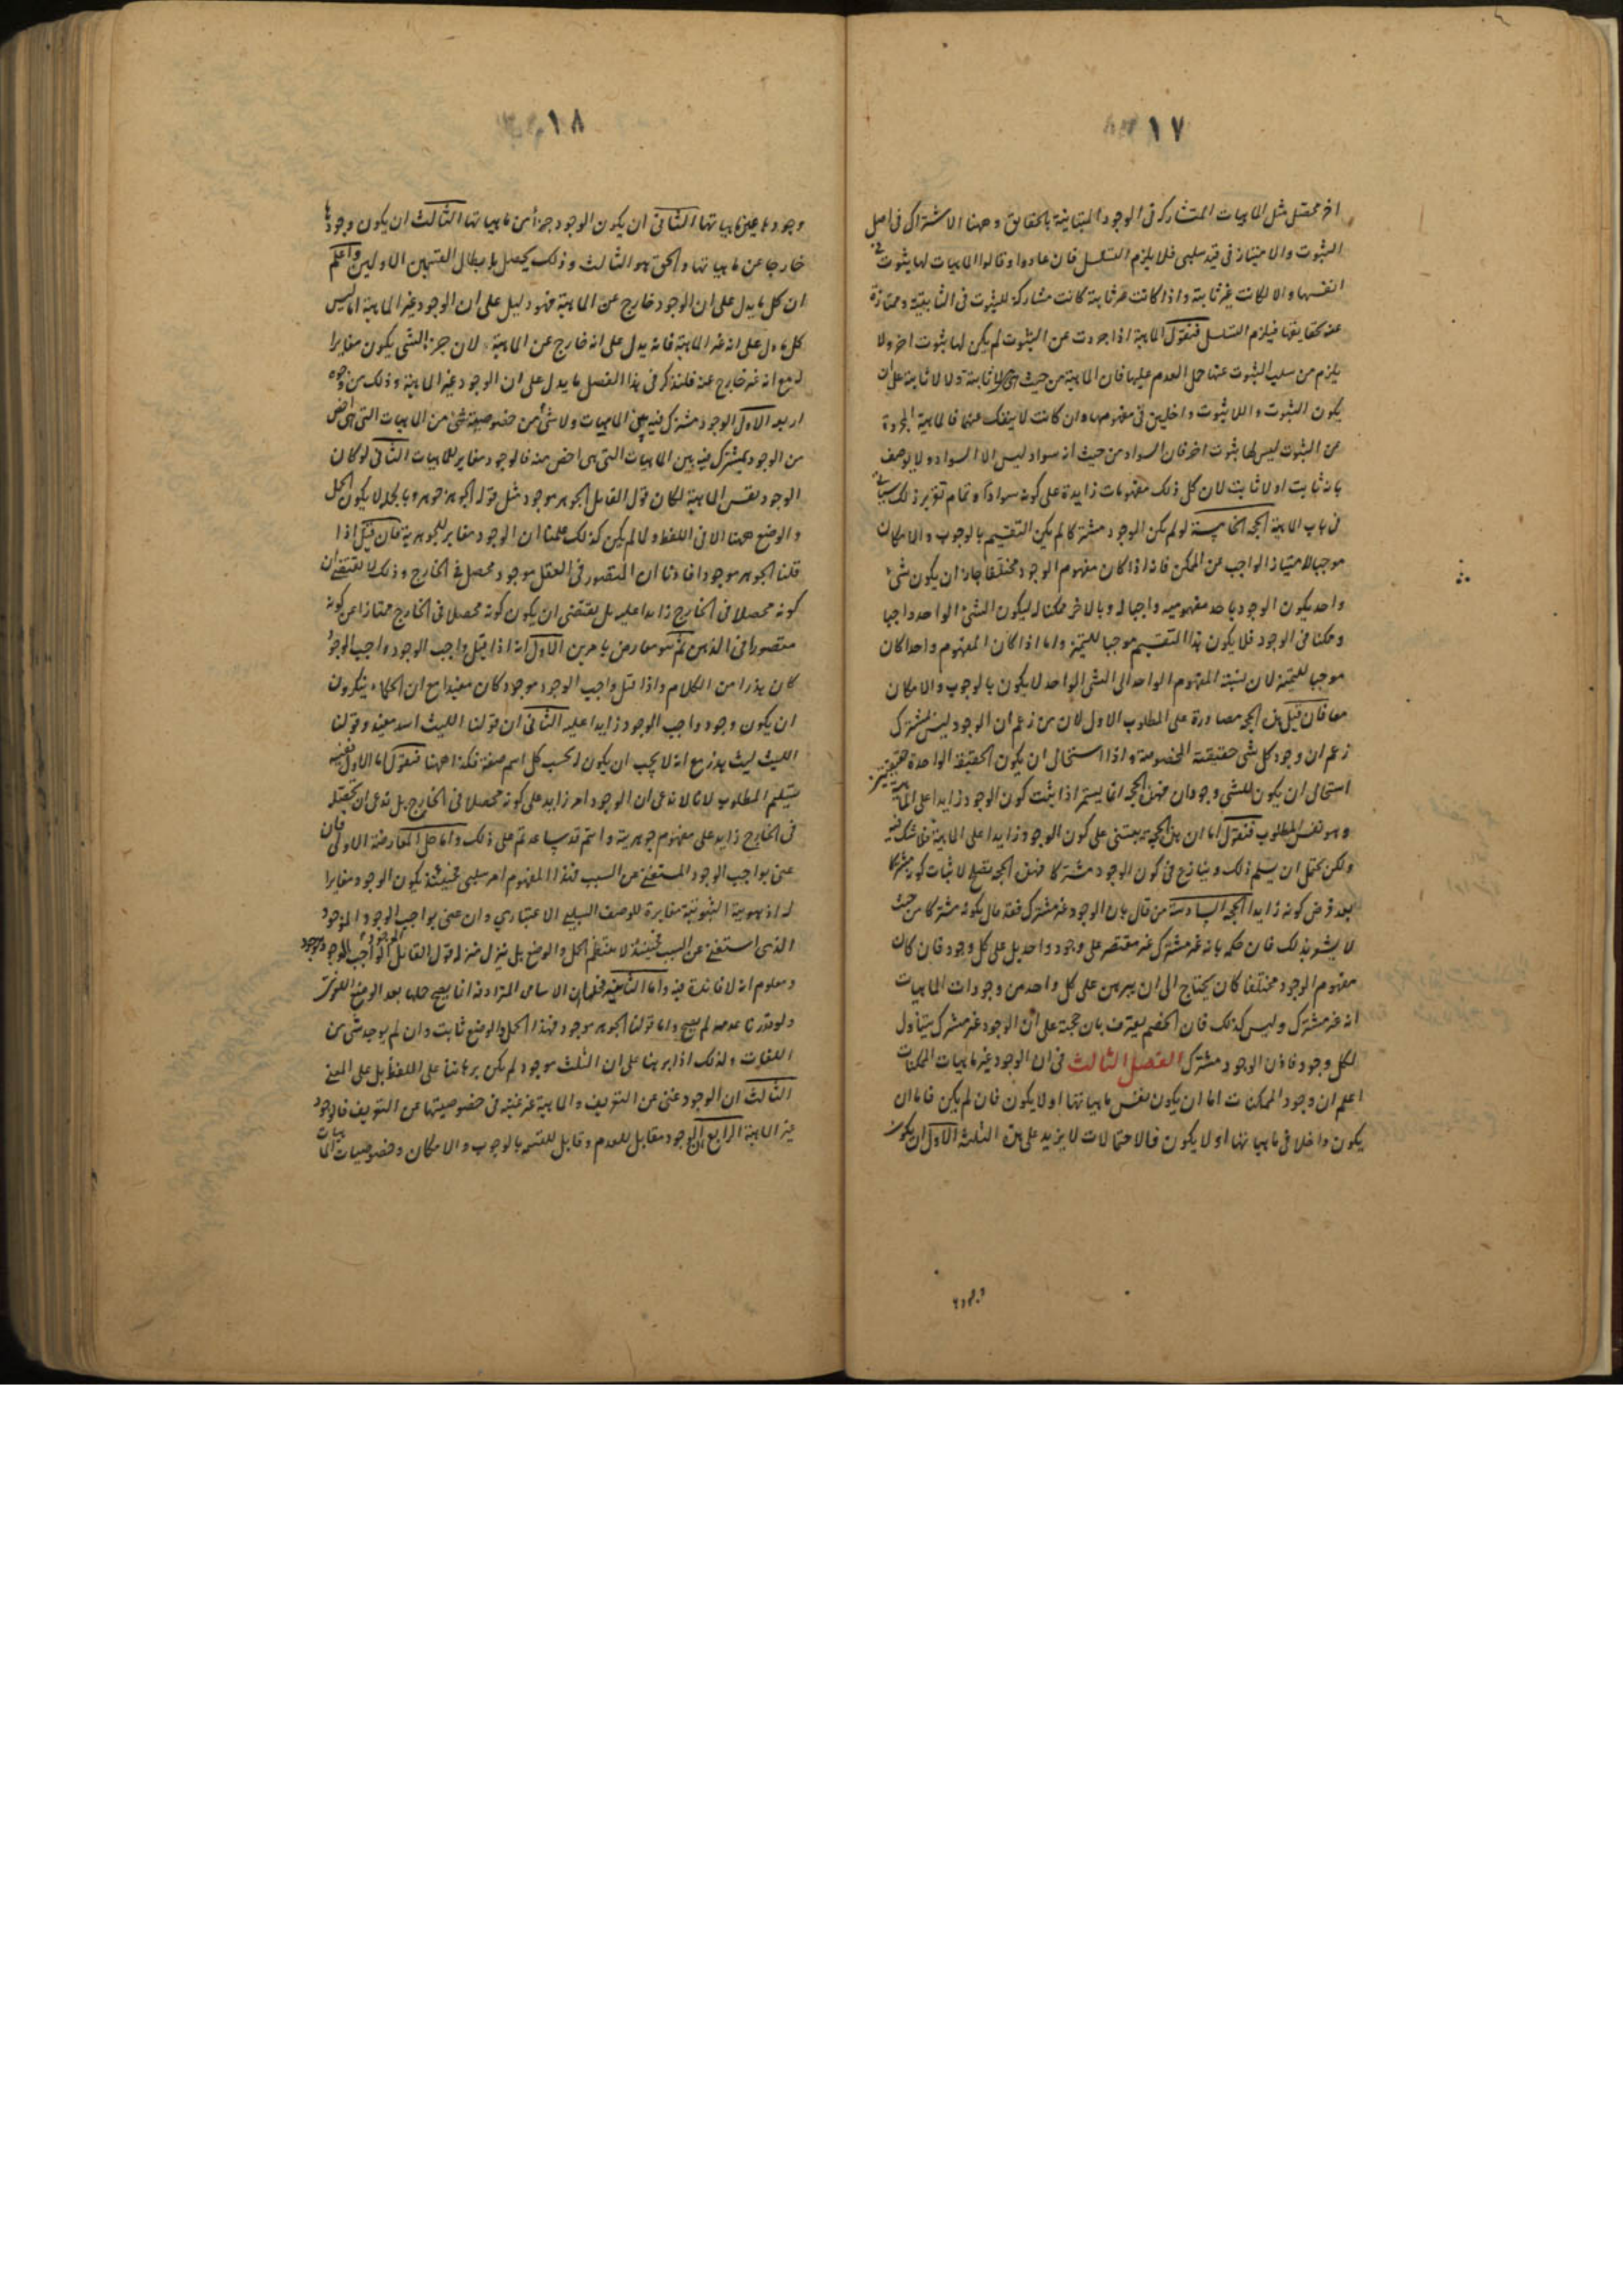 ١٧
اخر محصل مثل الماهيات المتشاركة فى الوجود المتباينة بالحقايق وههنا الاشتراك فى اصل
الثبوت والامتياز فى قيد سلبى فلا يلزم التسلسل فان عادوا وقالوا الماهيات لها ثبوت فى
انفسها والا لكانت غير ثابتة واذا كانت ثابتة كانت مشاركة للثبوت فى الثابتية وممتازة
عنه بحقايقها فيلزم التسلسل فنقول الماهية اذا جردت عن الثبوت لم يكن لها ثبوت اخر ولا
يلزم من سلب الثبوت عنها حمل العدم عليها فان الماهية من حيث هى لا ثابتة ولا لا ثابتة على ان
يكون الثبوت واللا ثبوت داخلين فى مفهومها وان كانت لا ينفك عنهما فالماهية المجردة
عن الثبوت ليس لها ثبوت اخر فان السواد من حيث انه سواد ليس الا السواد ولا يوصف
بانه ثابت او لا ثابت لان كل ذلك مفهومات زايدة على كونه سوادا وتمام تقرير ذلك سياتى
فى باب الماهية الحجة الخامسة لو لم يكن الوجود مشتركا لم يكن التقسيم بالوجوب والامكان
موجبا لامتياز الواجب عن الممكن فانه اذا كان مفهوم الوجود مختلفا جاز ان يكون شىء
واحد يكون الوجود باحد مفهوميه واجبا له وبالاخر ممكنا له ليكون الشىء الواحد واجبا
وممكنا فى الوجود فلا يكون هذا التقسيم موجبا للتميز واما اذا كان المفهوم واحدا كان
موجبا للتميز لان نسبة المفهوم الواحد الى الشى الواحد لا يكون بالوجوب والامكان
معا فان قيل هذه الحجة مصادرة على المطلوب الاول لان من زعم ان الوجود ليس بمشترك
زعم ان وجود كل شى حقيقته المخصوصة واذا استحال ان يكون الحقيقة الواحدة حقيقتين
استحال ان يكون للشى وجودان فهذه الحجة انما يستمر اذا ثبت كون الوجود زايدا على الماهية
وهو نفس المطلوب فنقول اما ان هذه الحجة يبتنى على كون الوجود زايدا على الماهية فما شك فيه
ولكن يحتمل ان يسلم ذلك وينازع فى كون الوجود مشتركا فهذه الحجة تصلح لاثبات كونه مشتركا
بعد فرض كونه زايدا الحجة السادسة من قال بان الوجود غير مشترك فقد قال بكونه مشتركا من حيث
لا يشعر بذلك فان حكمه بانه غير مشترك غير مقتصر على وجود واحد بل على كل وجود فان كان
مفهوم الوجود مختلفا كان يحتاج الى ان يبرهن على كل واحد من وجودات الماهيات
انه غير مشترك وليس كذلك فان الخصم يعترف بان حجته على ان الوجود غير مشترك يتناول
لكل وجود فاذن الوجود مشترك الفصل الثالث فى ان الوجود غير ماهيات الممكنات
اعلم ان وجود الممكنات اما ان يكون نفس ماهياتها او لا يكون فان لم يكن فاما ان
يكون داخلا فى ماهياتها او لا يكون فالاحتمالات لا يزيد على هذه الثلثة الاول ان يكون
وجودها
١٨
وجودها عين ماهياتها الثانى ان يكون الوجود جزأ من ماهياتها الثالث ان يكون وجودها
خارجا عن ماهياتها والحق هو الثالث وذلك يحصل بابطال القسمين الاولين واعلم
ان كل ما يدل على ان الوجود خارج عن الماهية فهو دليل على ان الوجود غير الماهية اما ليس
كل ما دل على انه غير الماهية فانه يدل على انه خارج عن الماهية لان جزء الشى يكون مغايرا
له مع انه غير خارج عنه فلنذكر فى هذا الفصل ما يدل على ان الوجود غير الماهية وذلك من وجوه
اربعة الاول الوجود مشترك فيه بين الماهيات ولا شىء من خصوصية شى من الماهيات التى هى اخص
من الوجود بمشترك فيه بين الماهيات التى هى اخص منه فالوجود مغاير للماهيات الثانى لو كان
الوجود نفس الماهية لكان قول القايل الجوهر موجود مثل قوله الجوهر جوهر وبالجملة لا يكون الحمل
والوضع ههنا الا فى اللفظ ولما لم يكن كذلك علمنا ان الوجود مغاير للجوهرية فان قيل اذا
قلنا الجوهر موجود افادنا ان المتصور فى العقل موجود محصل فى الخارج وذلك لا يقتضى ان
كونه محصلا فى الخارج زايدا عليه بل يقتضى ان يكون كونه محصلا فى الخارج ممتازا عن كونه
متصورا فى الذهن ثم هو معارض بامرين الاول انه اذا قيل واجب الوجود واجب الوجود
كان هذرا من الكلام واذا قيل واجب الوجود موجود كان مفيدا مع ان الحكماء ينكرون
ان يكون وجود واجب الوجود زايدا عليه الثانى ان قولنا الليث اسد مفيد وقولنا
الليث ليث هذر مع انه لا يجب ان يكون له بحسب كل اسم صفة فكذا ههنا فنقول اما الاول ففيه
تسليم المطلوب لانا لا ندعى ان الوجود امر زايد على كونه محصلا فى الخارج بل ندعى ان تحققه
فى الخارج زايد على مفهوم جوهريته وانتم قد ساعدتم على ذلك واما حل المعارضة الاولى فان
عنى بواجب الوجود المستغنى عن السبب فهذا المفهوم امر سلبى فحينئذ يكون الوجود مغايرا
له اذ هويته الثبوتية مغايرة للوصف السلبى الاعتبارى وان عنى بواجب الوجود الموجود
الذى استغنى عن السبب فحينئذ لا ينتظم الحمل والوضع بل ينزل منزلة قول القايل الموجود الواجب الوجود موجود
ومعلوم انه لا فائدة فيه واما الثانية فهو ان الاسامى المترادفة انما يصح حملها بعد الوضع اللغوى
ولو قدرنا عدمه لم يصح واما قولنا الجوهر موجود فهذا الحمل والوضع ثابت وان لم يوجد شى من
اللغات ولذلك اذا برهنا على ان المثلث موجود لم يكن برهاننا على اللفظ بل على المعنى
الثالث ان الوجود غنى عن التعريف والماهية غير غنية فى خصوصيتها عن التعريف فالوجود
غير الماهية الرابع ان الوجود مقابل للعدم وقابل للقسمة بالوجوب والامكان وخصوصيات الماهيات